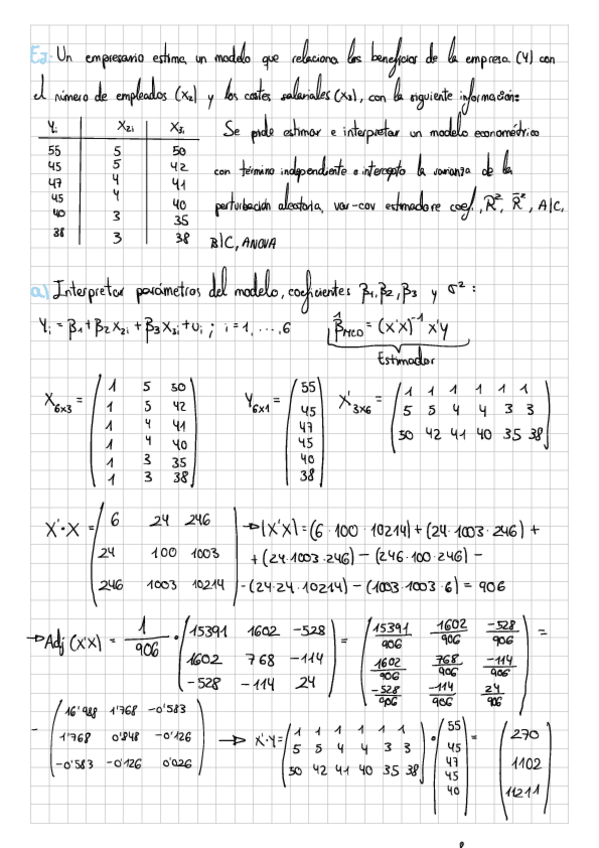 Ej: Un empresario estima un modelo que relaciona los beneficios de la empresa (Y) con
el número de empleados (X₂) y los costes salariales (X₃), con la siguiente información:
Yᵢ X₂ᵢ X₃ᵢ
55 5 50
45 5 42
47 4 41
45 4 40
40 3 35
38 3 38
Se pide estimar e interpretar un modelo econométrico
con término independiente e interceptor la varianza de la
perturbación aleatoria, var-cov estimadore coef., R², R̄², AIC,
BIC, ANOVA
a) Interpretar parámetros del modelo, coeficientes β₁, β₂, β₃ y σ²:
Yᵢ = β₁ + β₂X₂ᵢ + β₃X₃ᵢ + uᵢ ; i = 1, ..., 6 β̂MCO = (X'X)⁻¹ X'Y
Estimador
X₆ₓ₃ = Y₆ₓ₁ = X'₃ₓ₆ =
1 5 50
1 5 42
1 4 41
1 4 40
1 3 35
1 3 38
55
45
47
45
40
38
1 1 1 1 1 1
5 5 4 4 3 3
50 42 41 40 35 38
X'·X =
6 24 246
24 100 1003
246 1003 10214
→ |X'X| = (6 · 100 · 10214) + (24 · 1003 · 246) +
+ (24 · 1003 · 246) − (246 · 100 · 246) −
− (24 · 24 · 10214) − (1003 · 1003 · 6) = 906
→ Adj (X'X) = 1/906 ·
15391 1602 −528
1602 768 −114
−528 −114 24
=
15391/906 1602/906 −528/906
1602/906 768/906 −114/906
−528/906 −114/906 24/906
=
16'988 1'768 −0'583
1'768 0'848 −0'126
−0'583 −0'126 0'026
→ X'·Y =
1 1 1 1 1 1
5 5 4 4 3 3
50 42 41 40 35 38
·
55
45
47
45
40
=
270
1102
11211